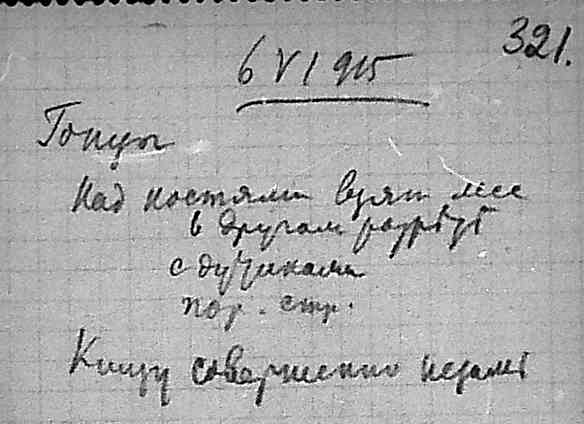 321.
6 VI 915
Гонцы
Над костями взят лесс
в другом разрѣзѣ
с дутиками
пор. стр.
Книзу совершенно незамѣ